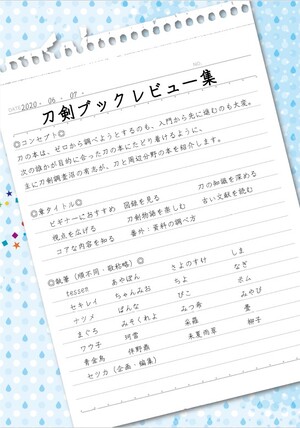 DATE 2020 ・ 06 ・ 07 ・
NO.
刀剣ブックレビュー集
◎コンセプト◎
刀の本は、ゼロから調べようとするのも、入門から先に進むのも大変。
次の誰かが目的に合った刀の本にたどり着けるように、
主に刀剣調査沼の有志が、刀と周辺分野の本を紹介します。
◎章タイトル◎
ビギナーにおすすめ 図録を見る 刀の知識を深める
視点を広げる 刀剣物語を楽しむ 古い文献を読む
コアな内容を知る 番外:資料の調べ方
◎執筆(順不同・敬称略)◎
tessen あやぽん さよのすけ しま
セキレイ ちゃんみお ちよ なぎ
ナツメ ぱんな ぴこ ポム
まぐろ みそくれよ みつ希 みやび
ワウ子 阿雷 采蕗 雪
黄金鳥 伊野燕 未夏雨享 樹子
セツカ(企画・編集)